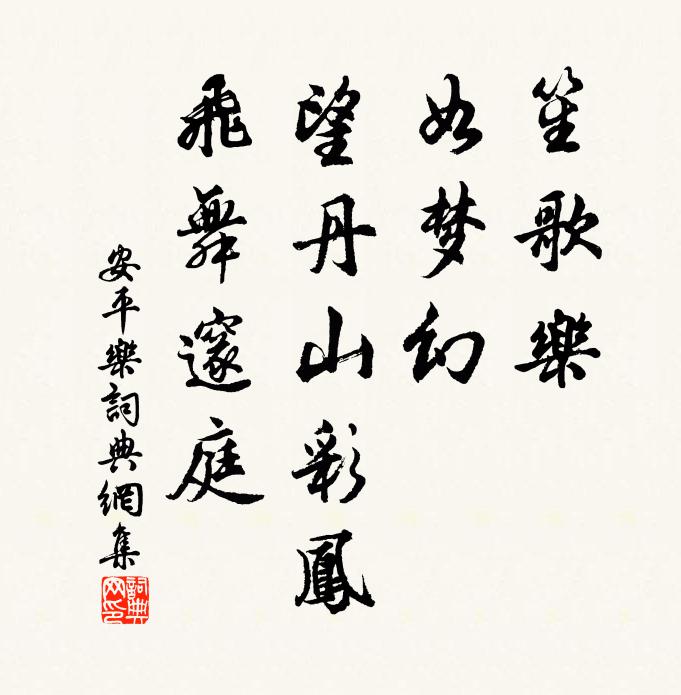 笙歌樂
如梦幻
望丹山彩鳳
飛舞邃庭
安平樂詞典網集
詞典网印